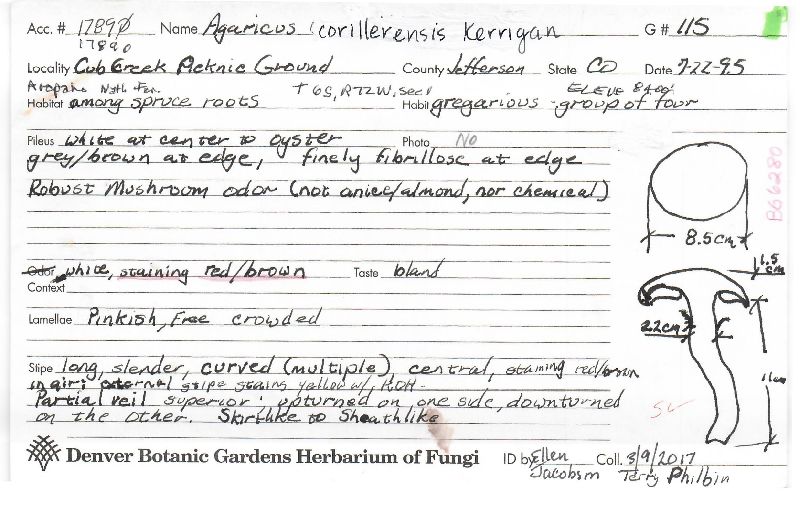 Acc. # 17890 Name Agaricus corillerensis Kerrigan G# 115
17890
Locality Cub Creek Picknic Ground County Jefferson State CO Date 7-22-95
Arapaho Natl For. T 6S, R72W, Sec 1 ELEVE 8400'
Habitat among spruce roots Habit gregarious - group of four
Pileus white at center to oyster Photo NO
grey/brown at edge, finely fibrillose at edge
Robust Mushroom odor (not anice/almond, nor chemical)
B66280
8.5cm
1.5 cm
Odor white, staining red/brown Taste bland
Context
Lamellae Pinkish, Free crowded
22cm
11cm
Stipe long, slender, curved (multiple), central, staining red/brown
in air; external stipe stains yellow w/ KOH-
Partial veil superior: upturned on one side, downturned
on the other. Skirtlike to Sheathlike
Denver Botanic Gardens Herbarium of Fungi ID by Ellen Jacobsm Coll. 3/9/2017
Terry Philbin